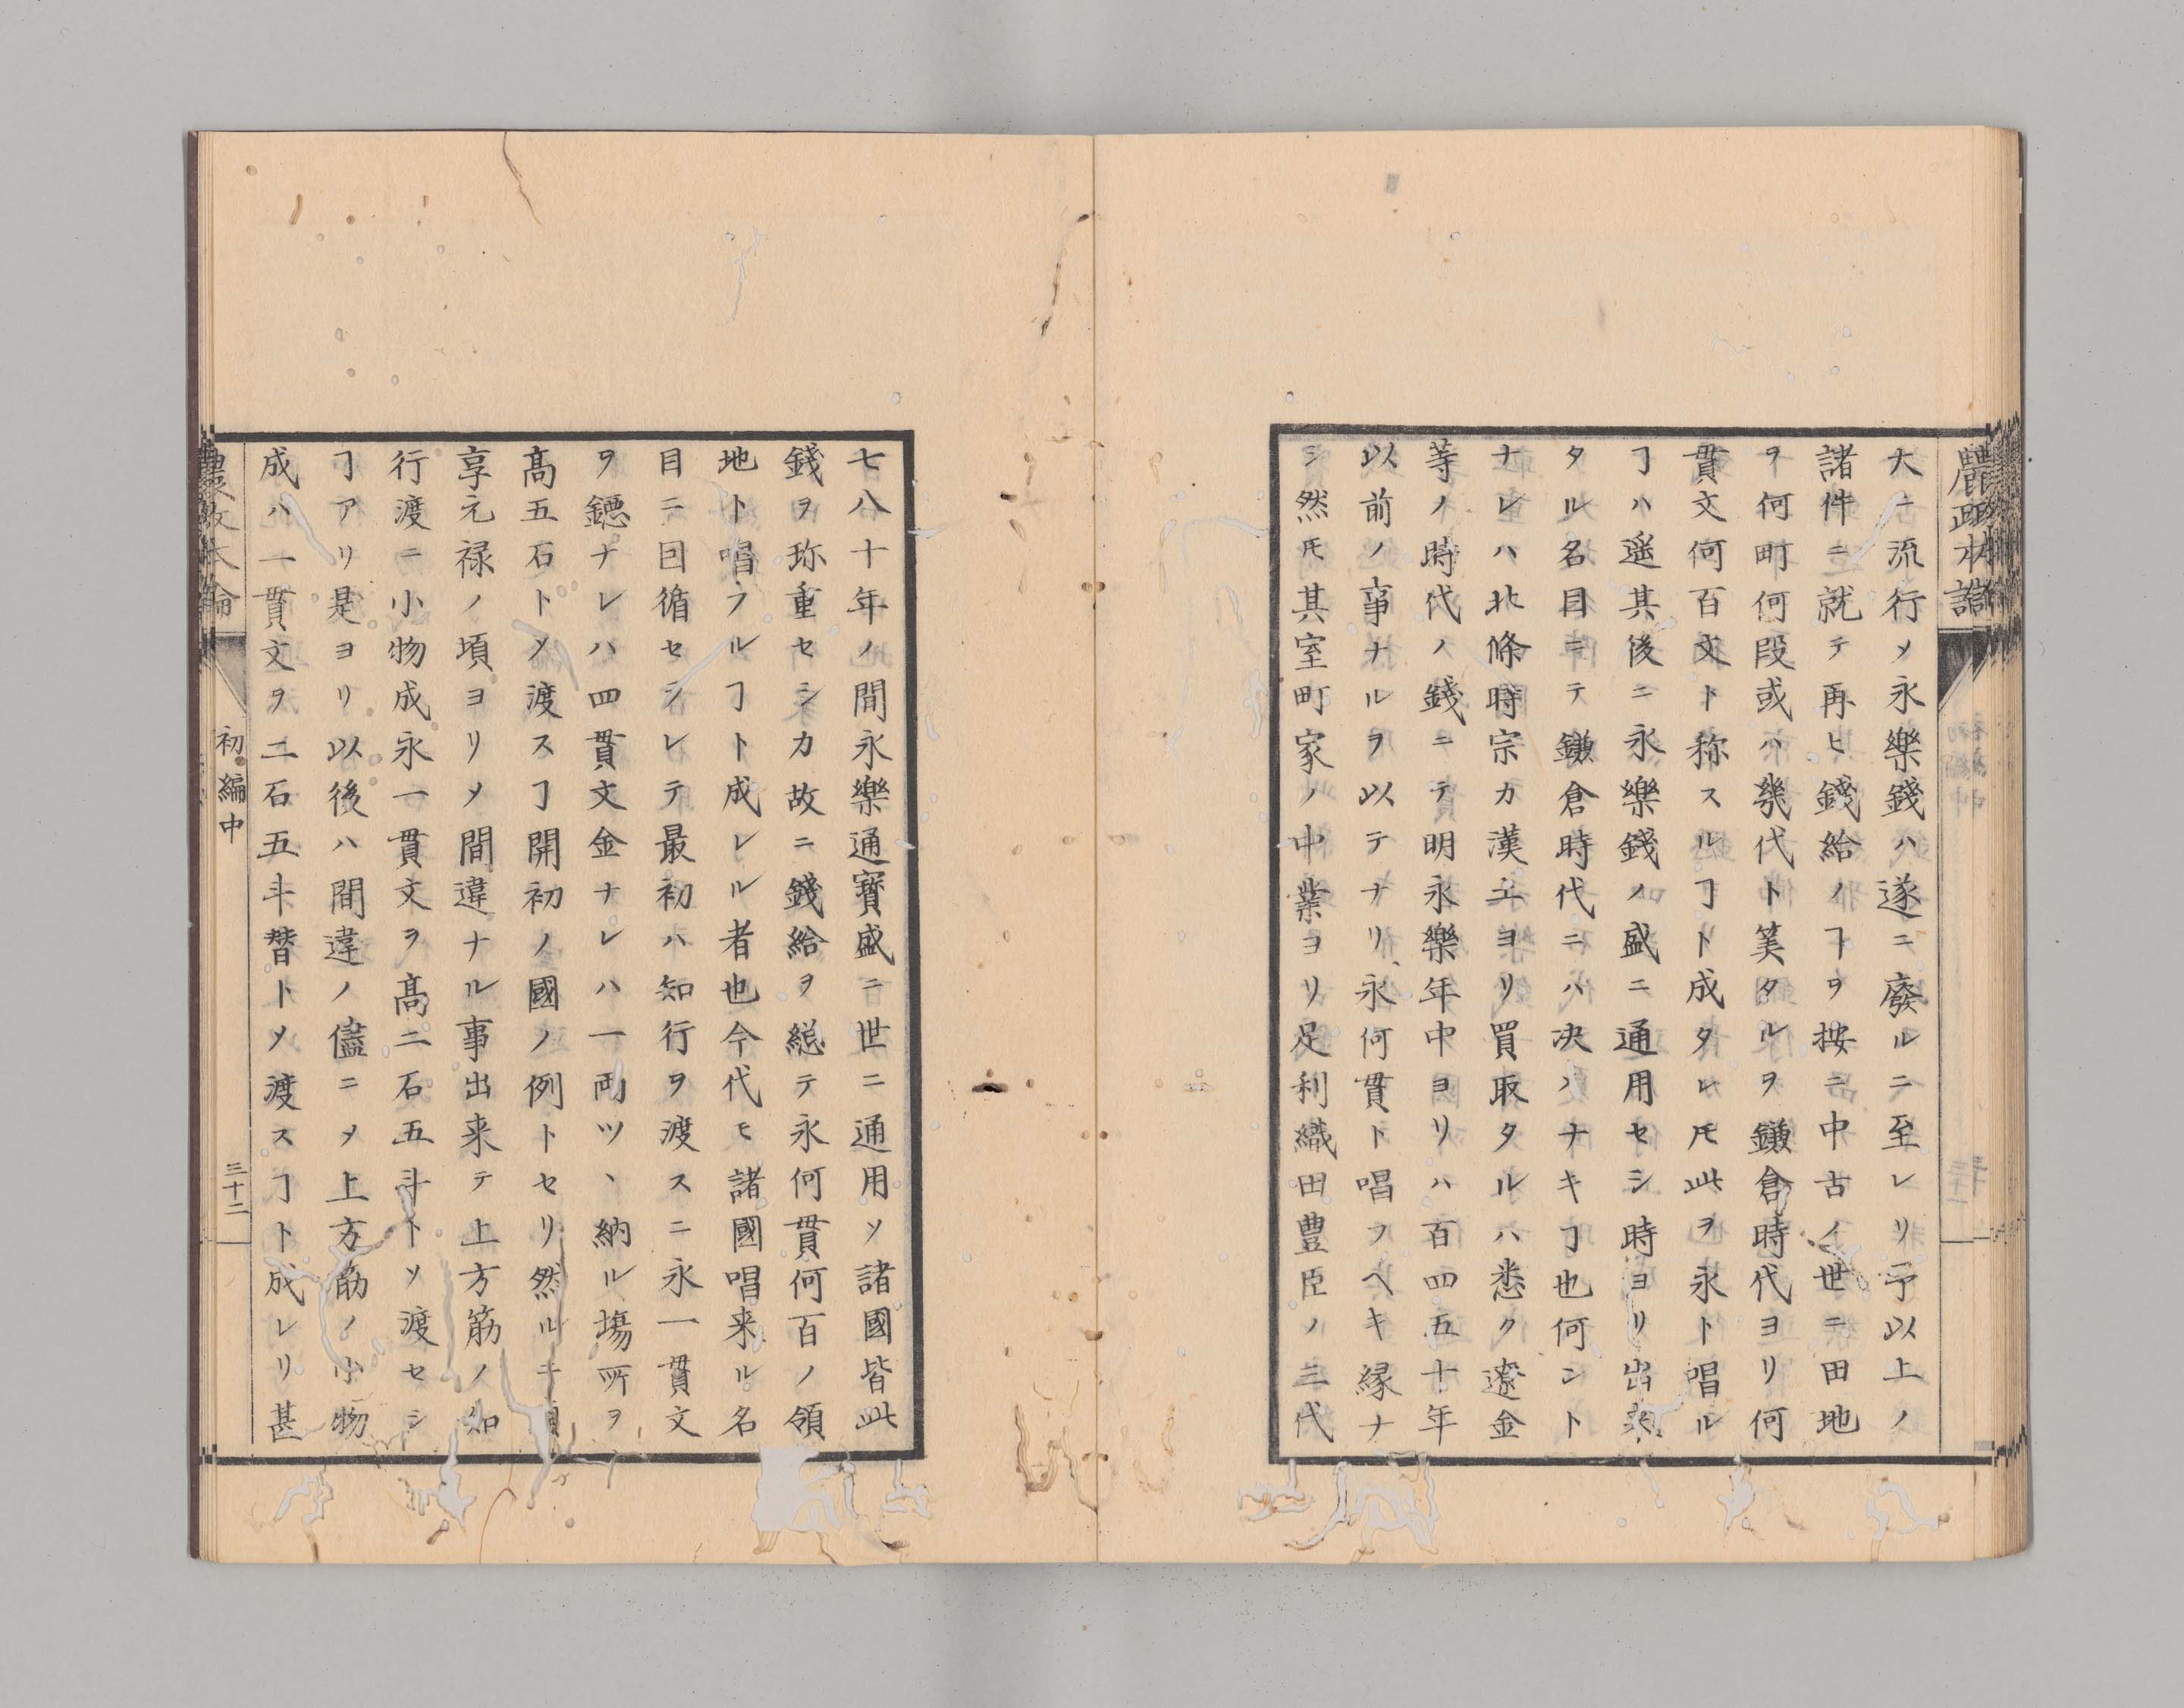 農政本論
大ニ流行乄永樂錢ハ遂ニ廢ルニ至レリ予以上ノ
諸件ニ就テ再ヒ錢給ノヿヲ按ニ中古ノ世ニ田地
ヲ何町何段或ハ幾代ト筭タルヲ鎌倉時代ヨリ何
貫文何百文ト称スルヿト成タレ𪜈此ヲ永ト唱ル
ヿハ遥其後ニ永樂錢ノ盛ニ通用セシ時ヨリ出来
タル名目ニテ鎌倉時代ニハ决ハナキヿ也何ントナレハ
北條時宗カ漢土ヨリ買取タルハ悉ク遼金
等ノ時代ノ錢ニテ明永樂年中ヨリハ百四五十年
以前ノ事ナルヲ以テナリ永何貫ト唱フヘキ縁ナ
シ然𪜈其室町家ノ中業ヨリ足利織田豊臣ノ三代
七八十年ノ間永樂通寳盛ニ世ニ通用ソ諸國皆此
錢ヲ珎重セシカ故ニ錢給ヲ総テ永何貫何百ノ領
地ト唱フルヿト成レル者也今代モ諸國唱来ル名
目ニ因循セシレテ最初ハ知行ヲ渡スニ永一貫文
ヲ鐚ナレハ四貫文金ナレハ一両ツヽ納ル塲所ヲ
髙五石ト乄渡スヿ開初ノ國ノ例トセリ然ルキ
享元禄ノ頃ヨリ乄間違ナル事出来テ上方筋ノ知
行渡ニ小物成永一貫文ヲ髙二石五斗トソ渡セシ
ヿアリ是ヨリ以後ハ間違ノ儘ニ乄上方筋ノ小物
成ハ一貫文ヲ二石五斗替ト乄渡スヿト成レリ甚
農政本論
初編中
三十二